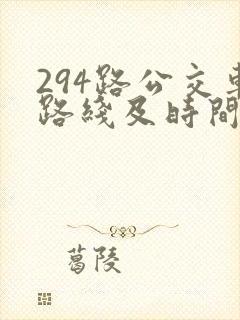 294路公交車
路綫及時間
葛陵